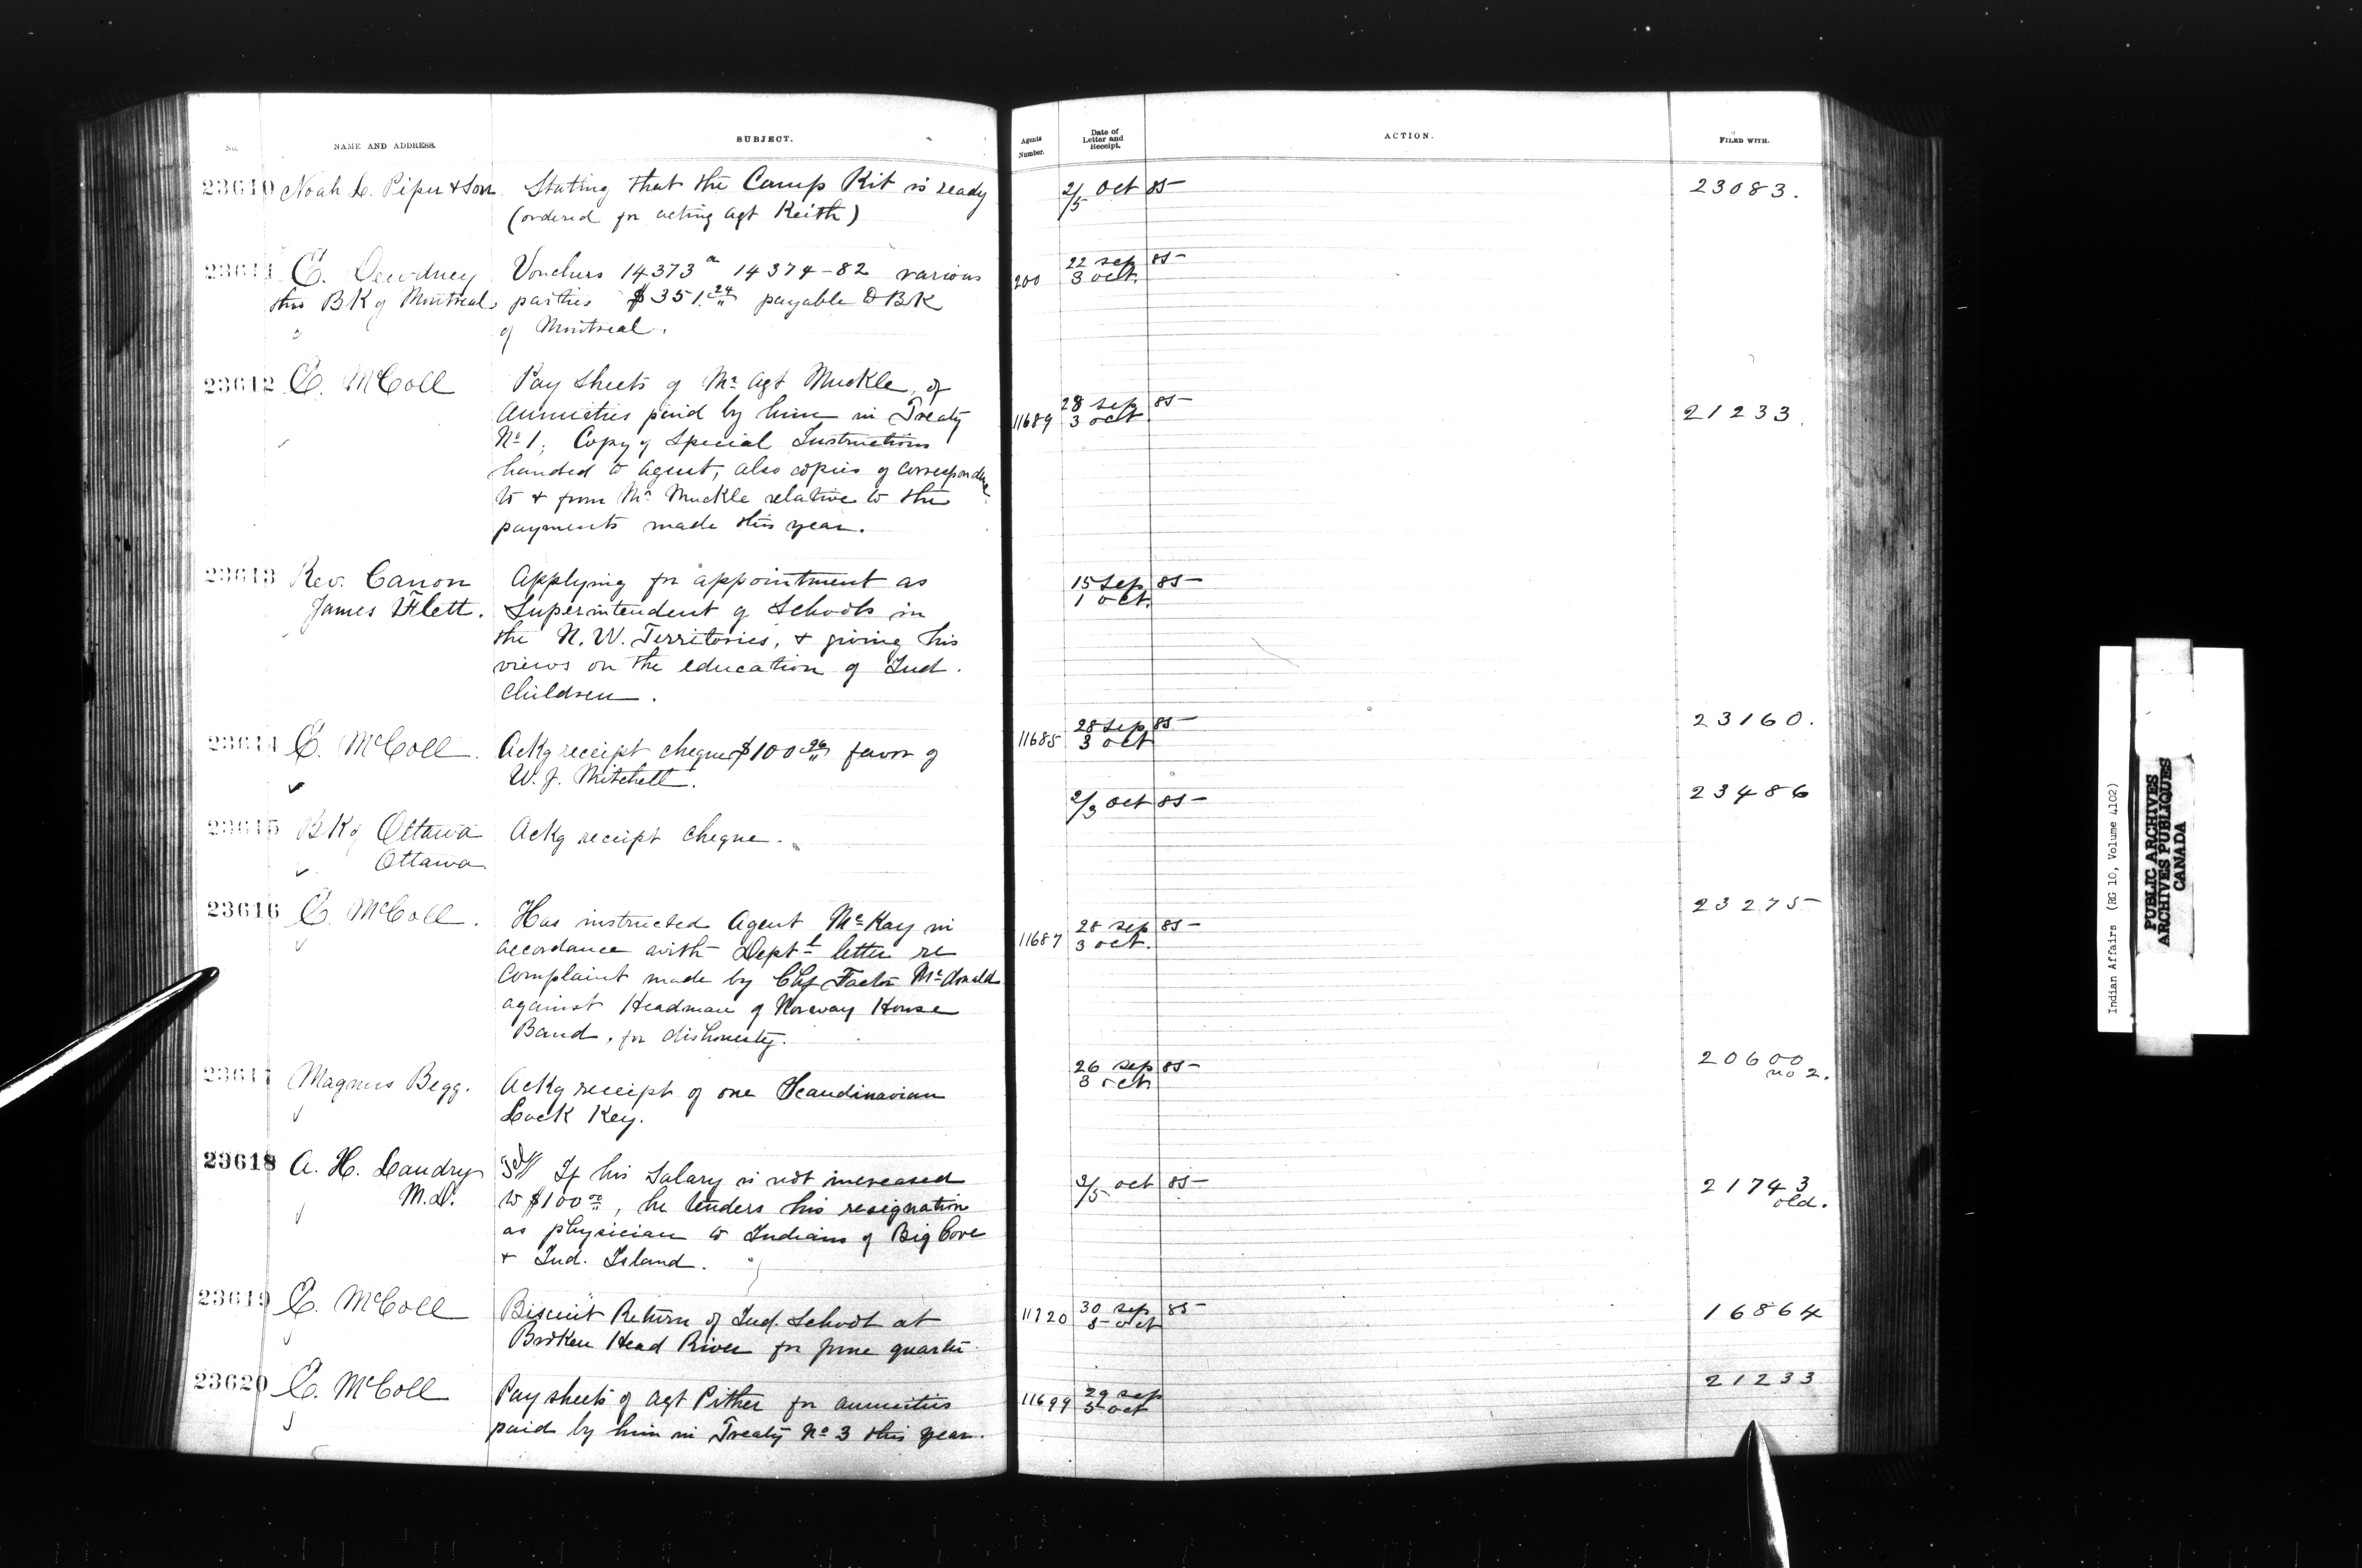 No.
NAME AND ADDRESS.
SUBJECT.
23610 Noah L. Piper & Son. Stating that the Camp Kit is ready
(ordered for acting Agt Keith)
23611 E. Dewdney Vouchers 14373 a 14374-82 various
thro BK of Montreal parties $351.24 payable to BK
of Montreal.
23612 E. McColl Pay sheets of Mr Agt Muckle, of
Annuities paid by him in Treaty
No 1, Copy of Special Instructions
handed to Agent, also copies of correspondence
to & from Mr Muckle relative to the
payments made this year.
23613 Rev. Canon Applying for appointment as
James Flett. Superintendent of Schools in
the N.W. Territories, & giving his
views on the education of Ind.
Children.
23614 E. McColl. Ackg receipt cheque $100 favor of
W. J. Mitchell.
23615 BK of Ottawa Ackg receipt cheque.
Ottawa
23616 E. McColl. Has instructed Agent McKay in
accordance with Deptl letter re
Complaint made by Chf Factor McDonald
against Headman of Norway House
Band, for dishonesty.
23617 Magnus Begg. Ackg receipt of one Scandinavian
Lock Key.
23618 A. H. Landry If his Salary is not increased
M.D. to $100.00, he tenders his resignation
as physician to Indians of Big Cove
& Ind. Island.
23619 E. McColl Biscuit Return of Ind. School at
Broken Head River for June quarter
23620 E. McColl Pay sheets of Agt Pither for annuities
paid by him in Treaty No 3 this year.
Agents
Number.
Date of
Letter and
Receipt.
ACTION.
FILED WITH.
2/5 Oct 85 23083.
22 Sep 85
200 3 Oct.
28 Sep 85
11689 3 Oct 21233.
15 Sep 85
1 Oct.
28 Sep 85 23160.
11685 3 Oct
2/3 Oct 85 23486
23275
28 Sep 85
11687 3 Oct.
26 Sep 85 20600
3 Oct no 2.
3/5 Oct 85 21743
old.
11720 30 Sep 85 16864
5 Oct
29 Sep 21233
11699 5 Oct
Indian Affairs (RG 10, Volume 4102)
PUBLIC ARCHIVES
ARCHIVES PUBLIQUES
CANADA